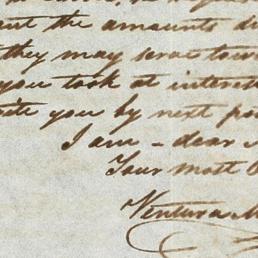 but the amounts d
they may serve tow
you took at interes
ite you by next po
I am - dear
Your most O
Ventura M